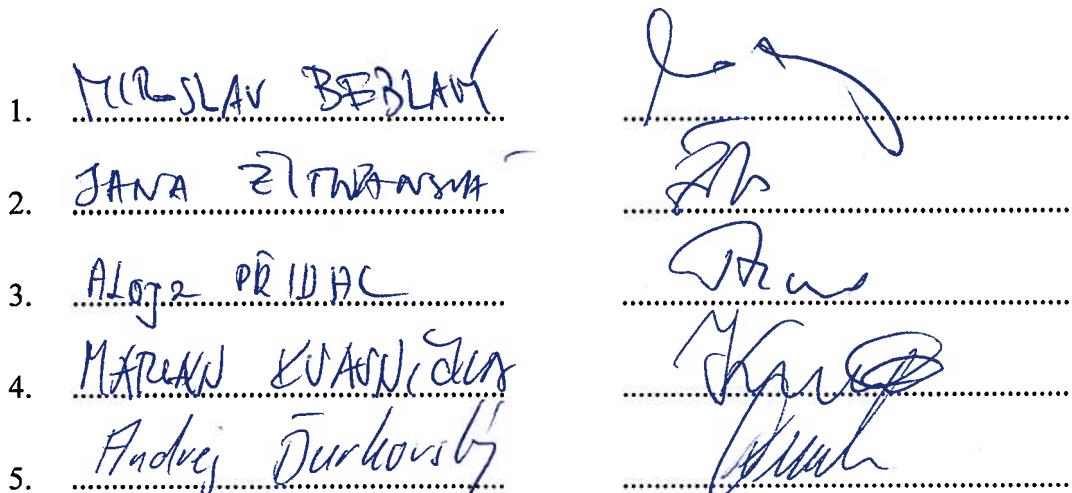 1. MIROSLAV BEBLAVÝ
2. JANA ŽITŇANSKÁ
3. ALOJZ PŘIDAL
4. MARIAN KVASNIČKA
5. Andrej Ďurkovský